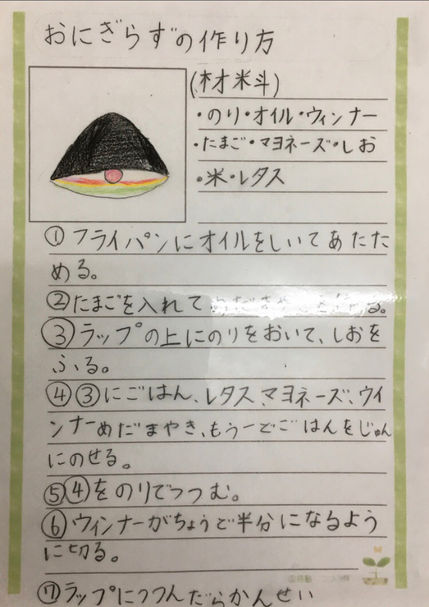 おにぎらずの作り方
(材料)
・のり・オイル・ウィンナー
・たまご・マヨネーズ・しお
・米・レタス
①フライパンにオイルをしいてあたた
める。
②たまごを入れて
る。
③ラップの上にのりをおいて、しおを
ふる。
④③にごはん、レタス、マヨネーズ、ウィ
ンナーめだまやき、もう一どごはんをじゅん
にのせる。
⑤④をのりでつつむ。
⑥ウィンナーがちょうど半分になるよう
に切る。
⑦ラップにつつんだらかんせい